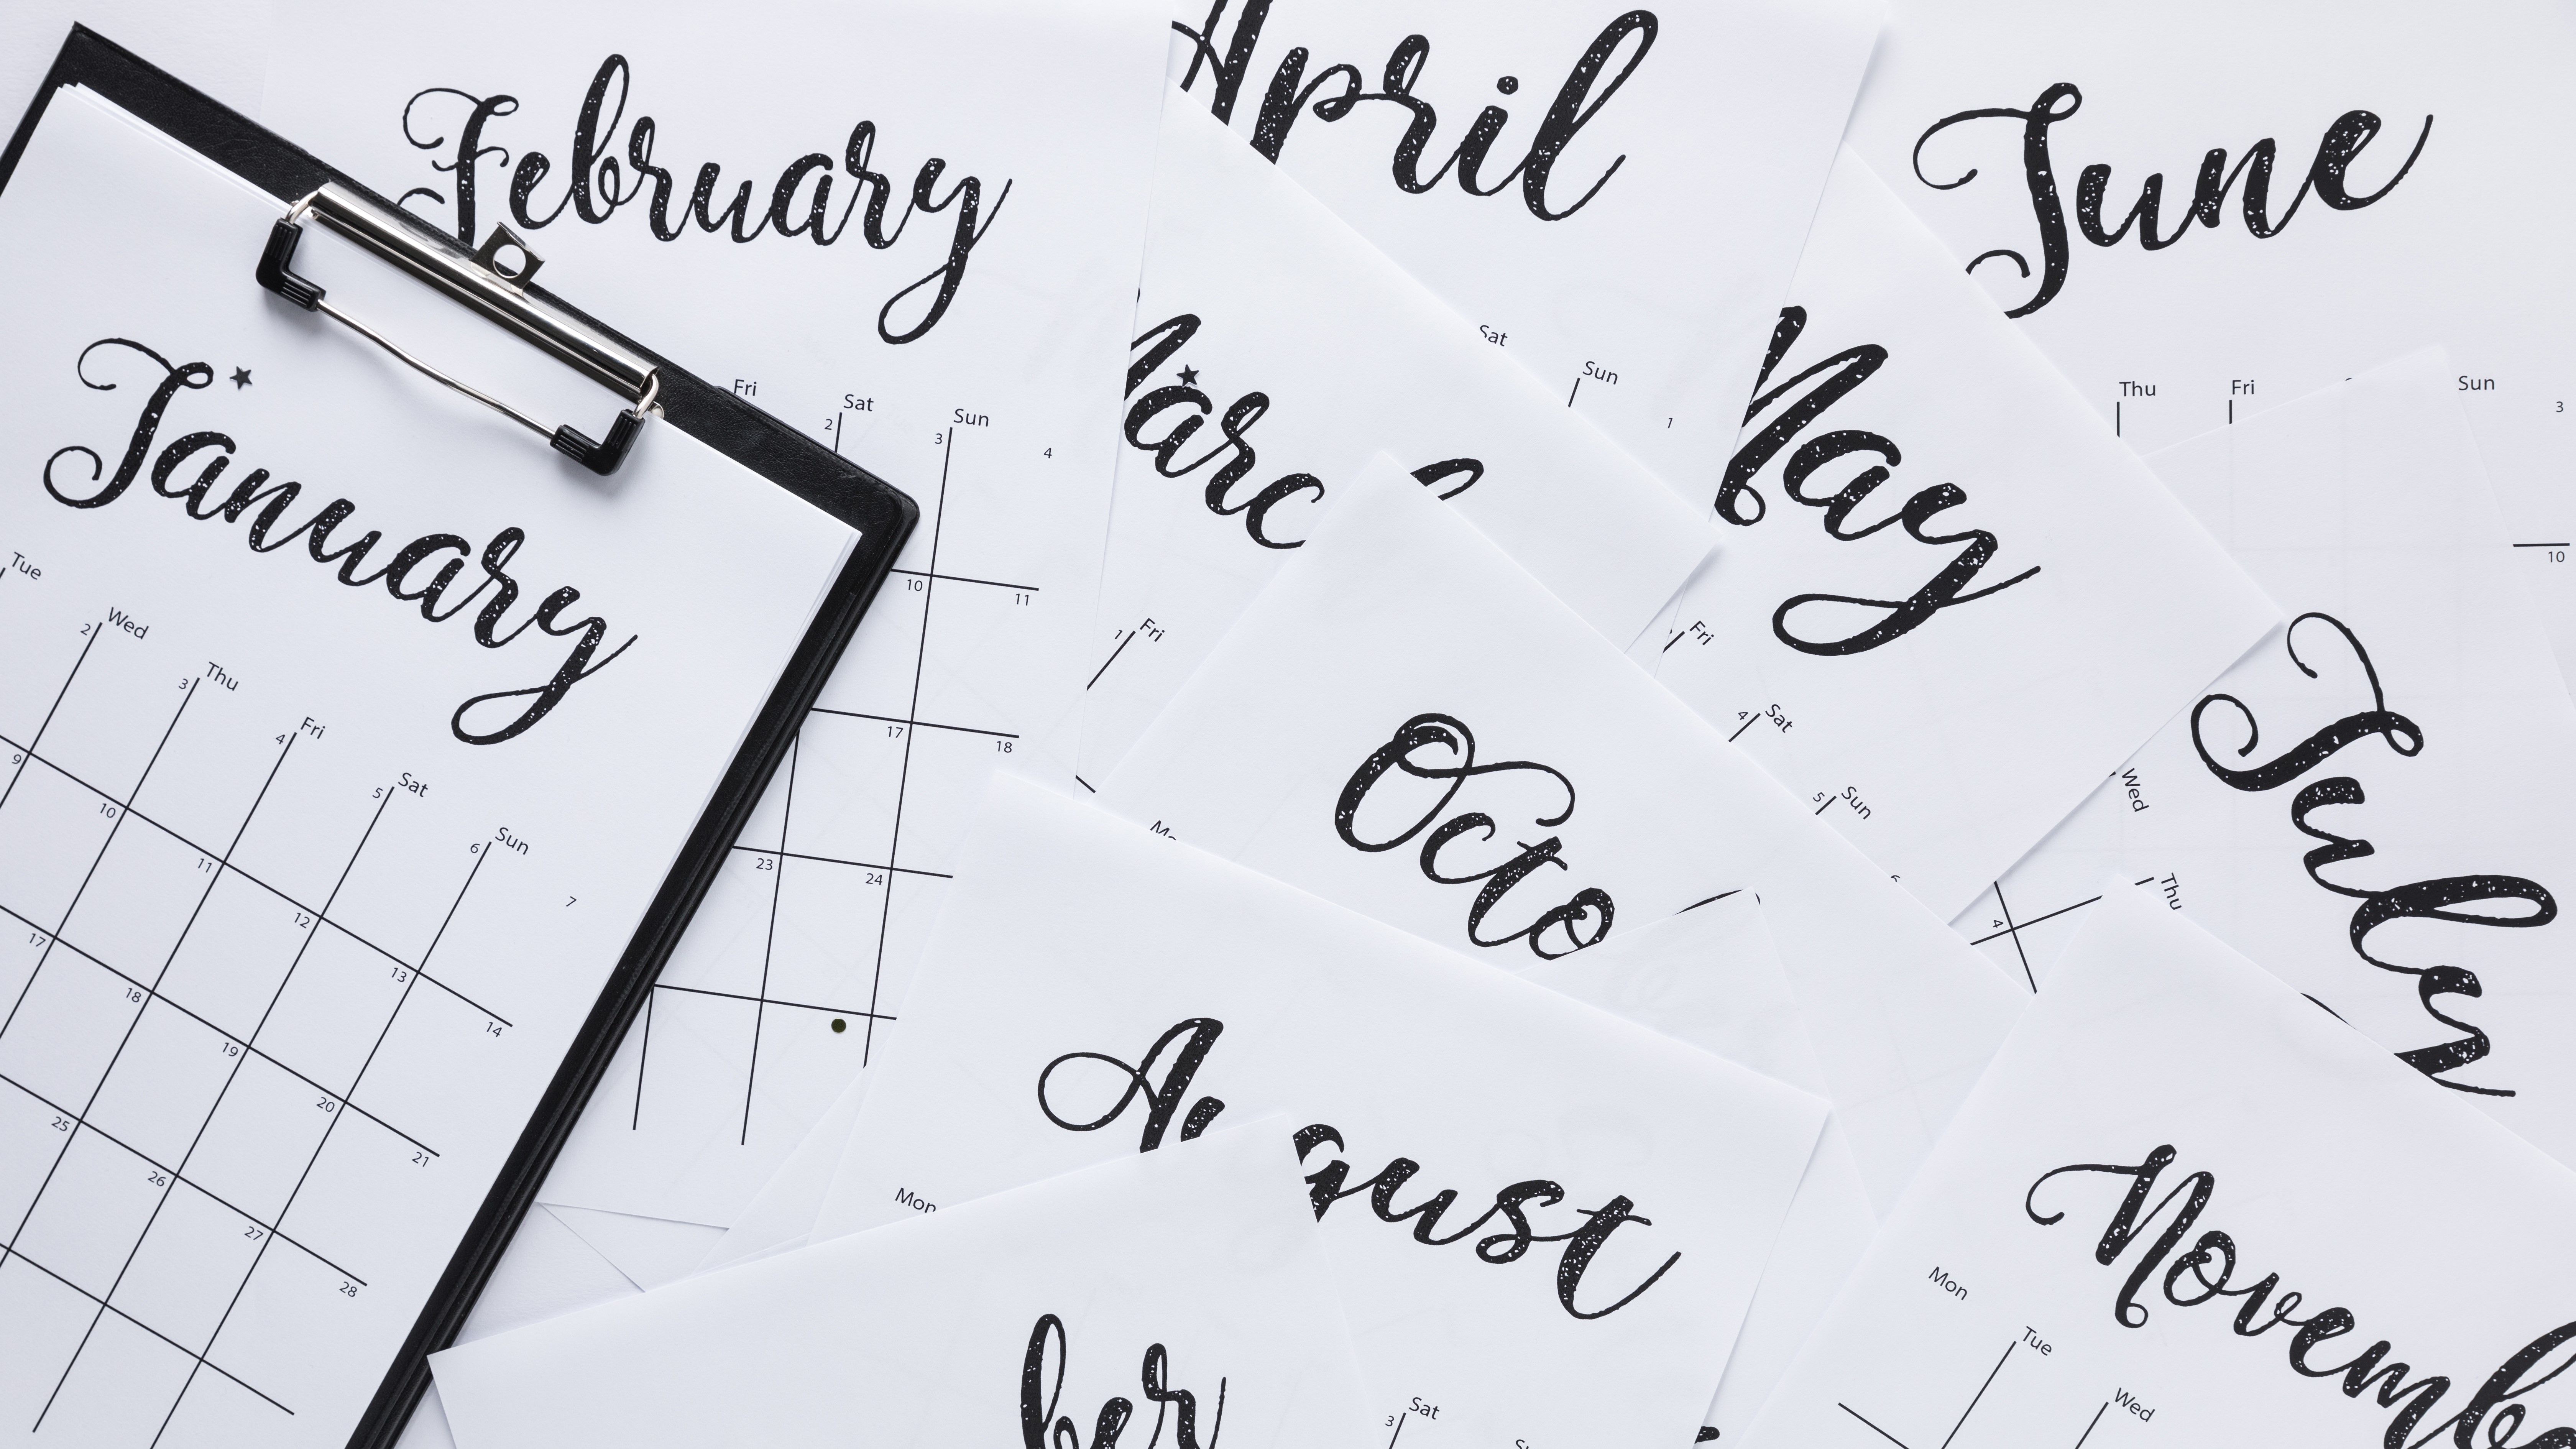 January
Tue
Wed
Thu
Fri
Sat
Sun
2
3
4
5
6
7
9
10
11
12
13
14
17
18
19
20
21
25
26
27
28
February
Fri
Sat
Sun
2
3
4
10
11
17
18
23
24
April
Sat
Sun
1
June
Thu
Fri
Sun
3
10
Marc
Fri
1
May
Fri
Sat
Sun
4
5
Octo
July
Wed
Thu
4
August
Mon
Sat
3
ber
Novemb
Mon
Tue
Wed